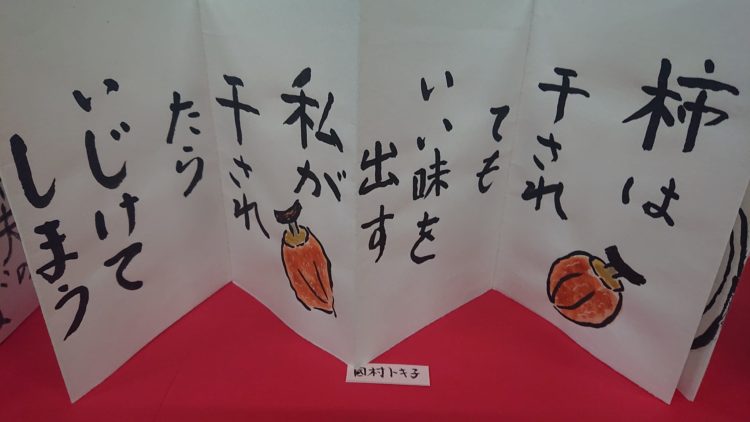 柿は
干され
ても
いい味を
出す
私が
干され
たら
いじけて
しまう
岡村トキ子